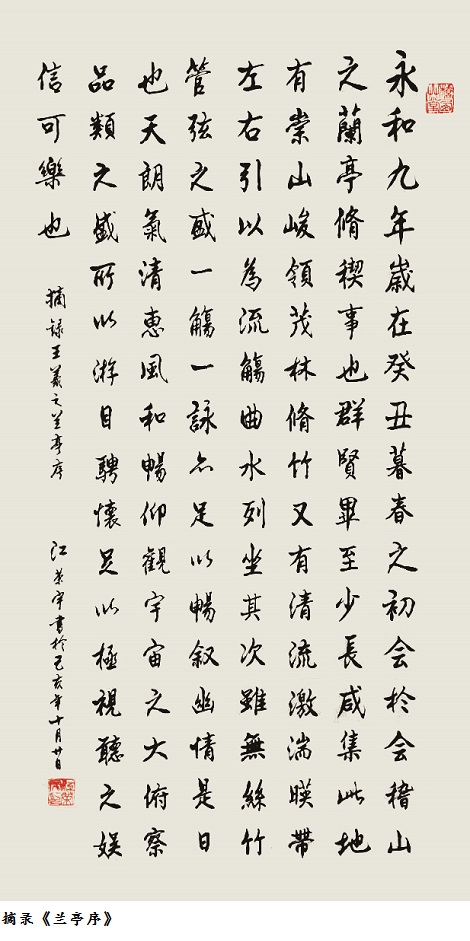 永和九年歲在癸丑暮春之初会於会稽山
之蘭亭脩稧事也群賢畢至少長咸集此地
有崇山峻領茂林脩竹又有清流激湍暎帶
左右引以為流觴曲水列坐其次雖無絲竹
管弦之盛一觴一詠亦足以暢叙幽情是日
也天朗氣清惠風和暢仰觀宇宙之大俯察
品類之盛所以游目騁懷足以極視聽之娱
信可樂也
摘録王羲之兰亭序
書於己亥年十月廿日
摘录《兰亭序》